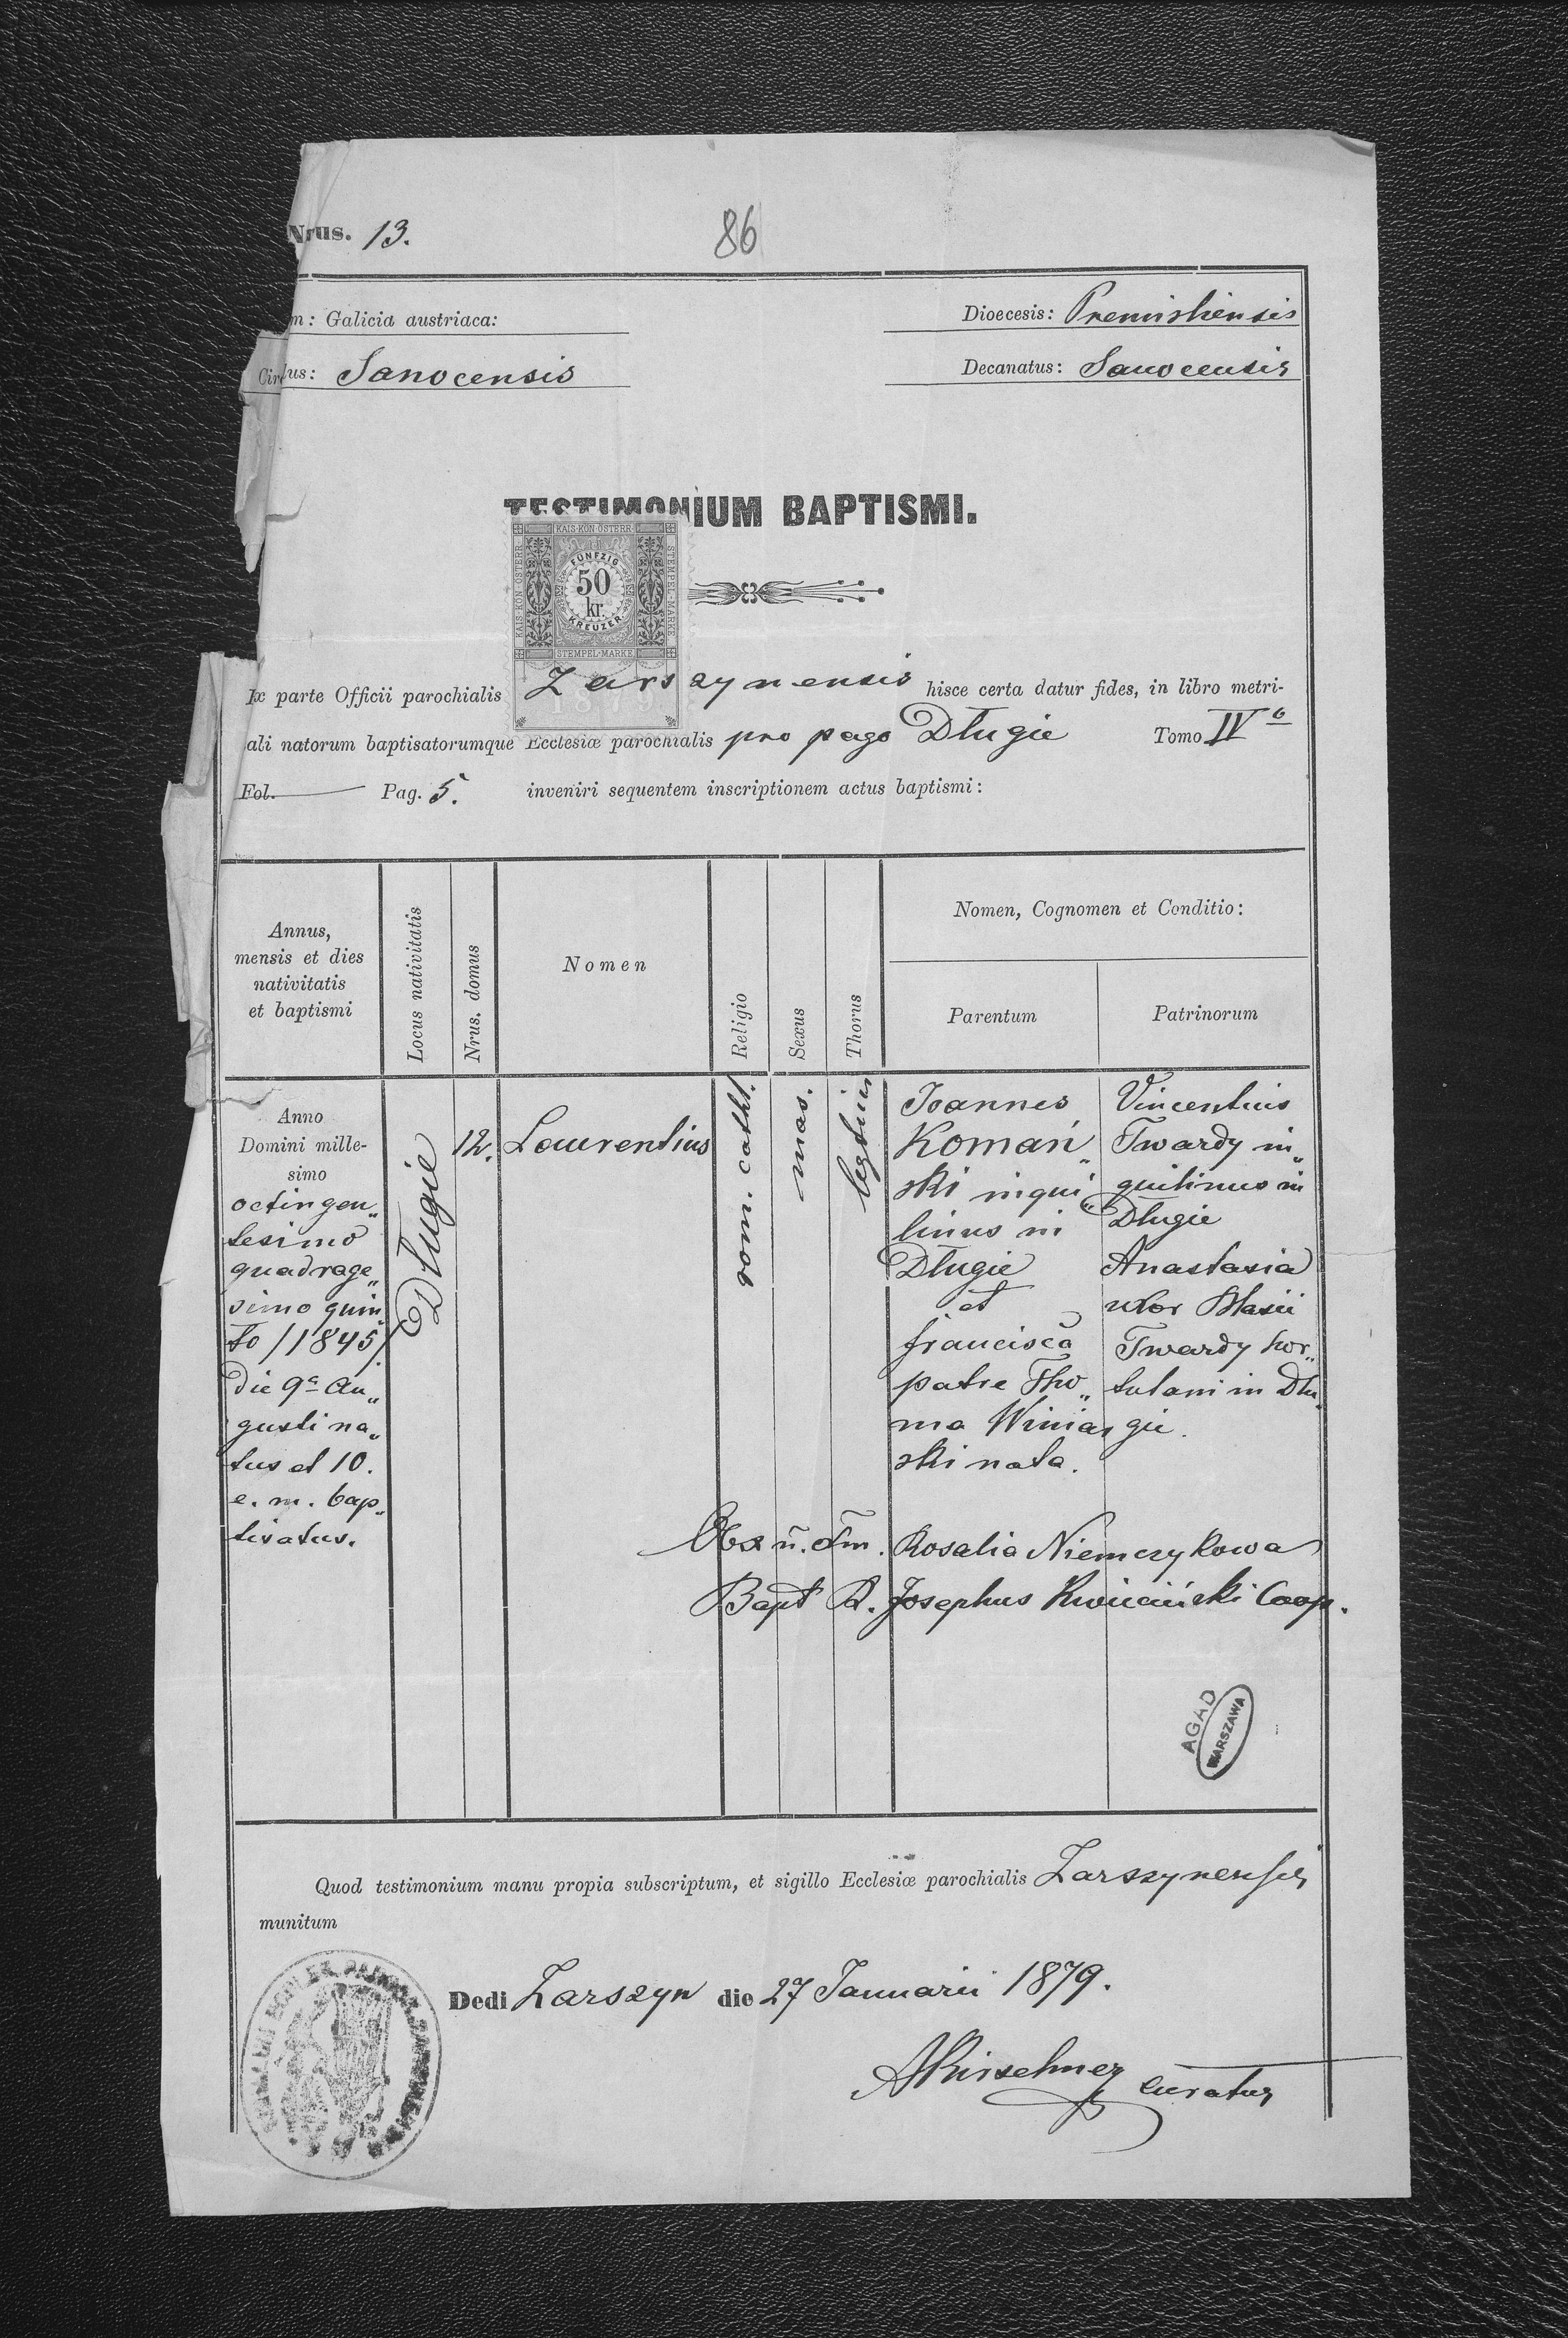 Nrus. 13.
86
m: Galicia austriaca:
Dioecesis: Premisliensis
Circlus: Sanocensis
Decanatus: Sanocensis
TESTIMONIUM BAPTISMI.
KAIS·KÖN·ÖSTERR·
KAIS·KÖN·ÖSTERR·
STEMPEL·MARKE
FÜNFZIG
50
kr.
KREUZER
STEMPEL·MARKE
1879
Ex parte Officii parochialis Zarszynensis hisce certa datur fides, in libro metri-
ali natorum baptisatorumque Ecclesiæ parochialis pro pago Długie Tomo IVo
Fol. Pag. 5. inveniri sequentem inscriptionem actus baptismi:
Annus,
mensis et dies
nativitatis
et baptismi
Locus nativitatis
Nrus. domus
Nomen
Religio
Sexus
Thorus
Nomen, Cognomen et Conditio:
Parentum
Patrinorum
Anno
Domini mille-
simo
octingen„
tesimo
quadrage„
simo quin„
to /1845/.
die 9a Au„
gusti na„
tus et 10.
e. m. bap„
tisatus.
Długie
12.
Laurentius
rom. cath.
mas.
Joannes
Komań„
ski inqui„
linus in
Długie
et
francisca
patre Tho„
ma Winiar
ski nata.
Vincentius
Twardy in„
quilinus in
Długie
Anastasia
uxor Blasii
Twardy hor„
tulani in Dłu„
gie.
Obx ñ. Rosalia Niemczykowa
Bapt R. Josephus Kwiciński Coop.
AGAD
WARSZAWA
Quod testimonium manu propia subscriptum, et sigillo Ecclesiæ parochialis Zarszynensis
munitum
Dedi Zarszyn die 27 Januarii 1879.
AKirschner curatus